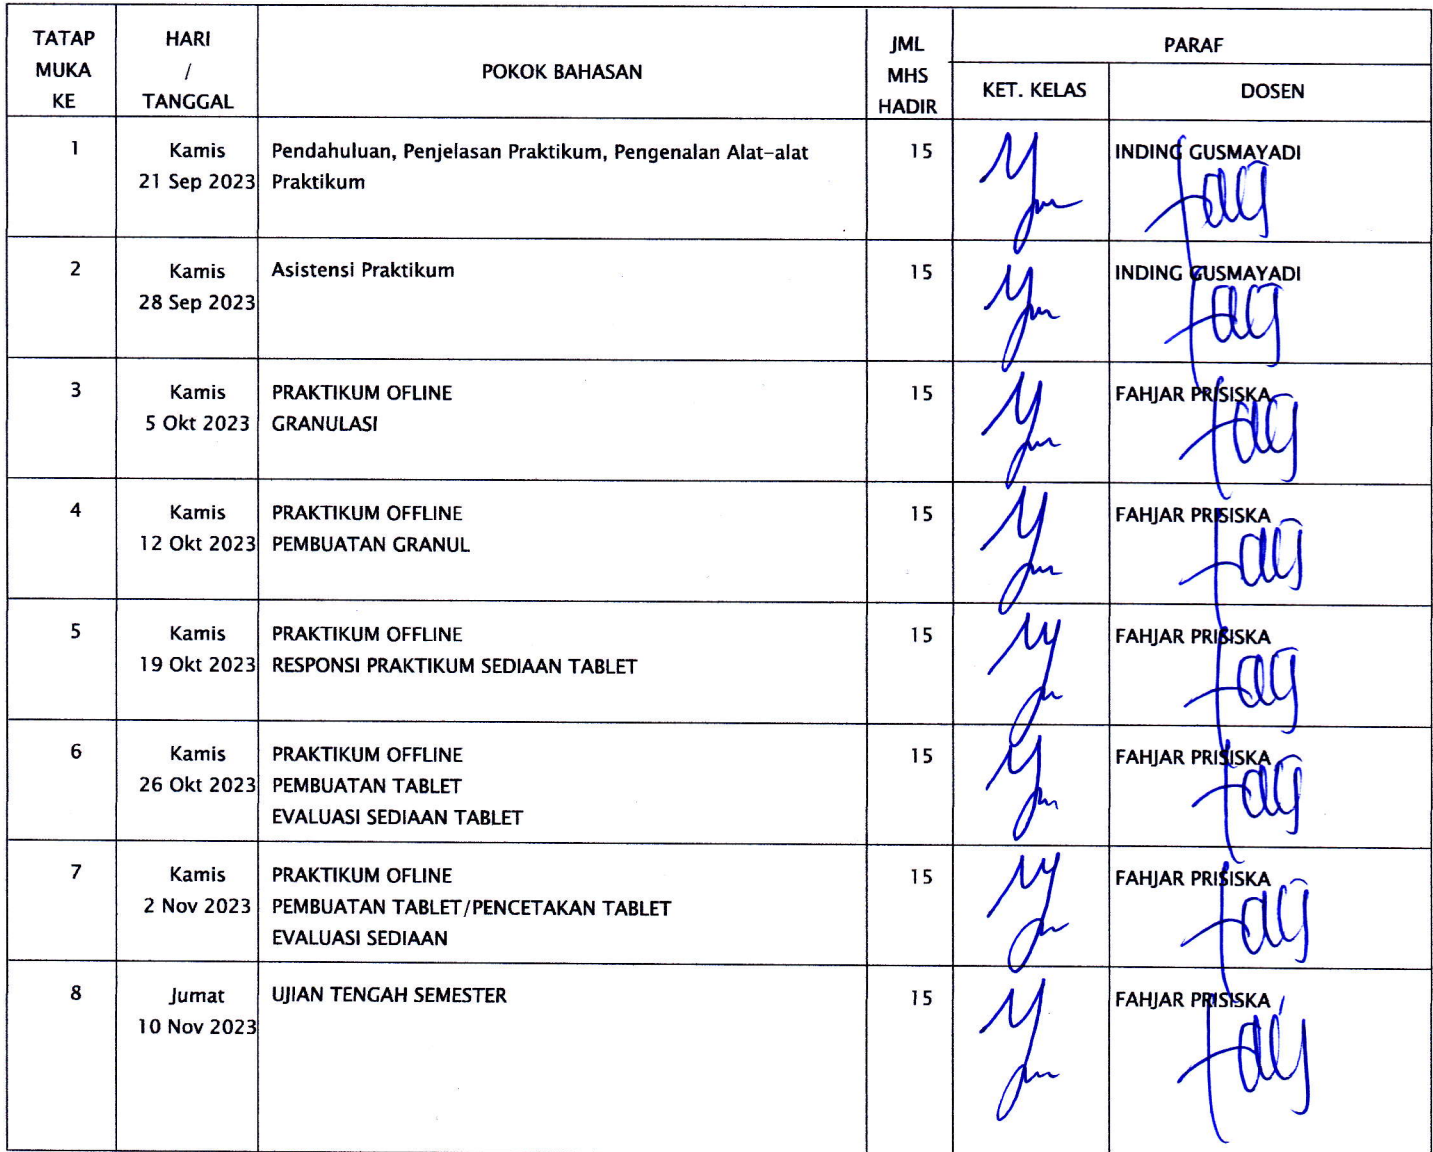 TATAP MUKA KE
HARI / TANGGAL
POKOK BAHASAN
JML MHS HADIR
PARAF
KET. KELAS
DOSEN
1
Kamis
21 Sep 2023
Pendahuluan, Penjelasan Praktikum, Pengenalan Alat-alat
Praktikum
15
INDING GUSMAYADI
2
Kamis
28 Sep 2023
Asistensi Praktikum
15
INDING GUSMAYADI
3
Kamis
5 Okt 2023
PRAKTIKUM OFLINE
GRANULASI
15
FAHJAR PRISISKA
4
Kamis
12 Okt 2023
PRAKTIKUM OFFLINE
PEMBUATAN GRANUL
15
FAHJAR PRISISKA
5
Kamis
19 Okt 2023
PRAKTIKUM OFFLINE
RESPONSI PRAKTIKUM SEDIAAN TABLET
15
FAHJAR PRISISKA
6
Kamis
26 Okt 2023
PRAKTIKUM OFFLINE
PEMBUATAN TABLET
EVALUASI SEDIAAN TABLET
15
FAHJAR PRISISKA
7
Kamis
2 Nov 2023
PRAKTIKUM OFLINE
PEMBUATAN TABLET/PENCETAKAN TABLET
EVALUASI SEDIAAN
15
FAHJAR PRISISKA
8
Jumat
10 Nov 2023
UJIAN TENGAH SEMESTER
15
FAHJAR PRISISKA